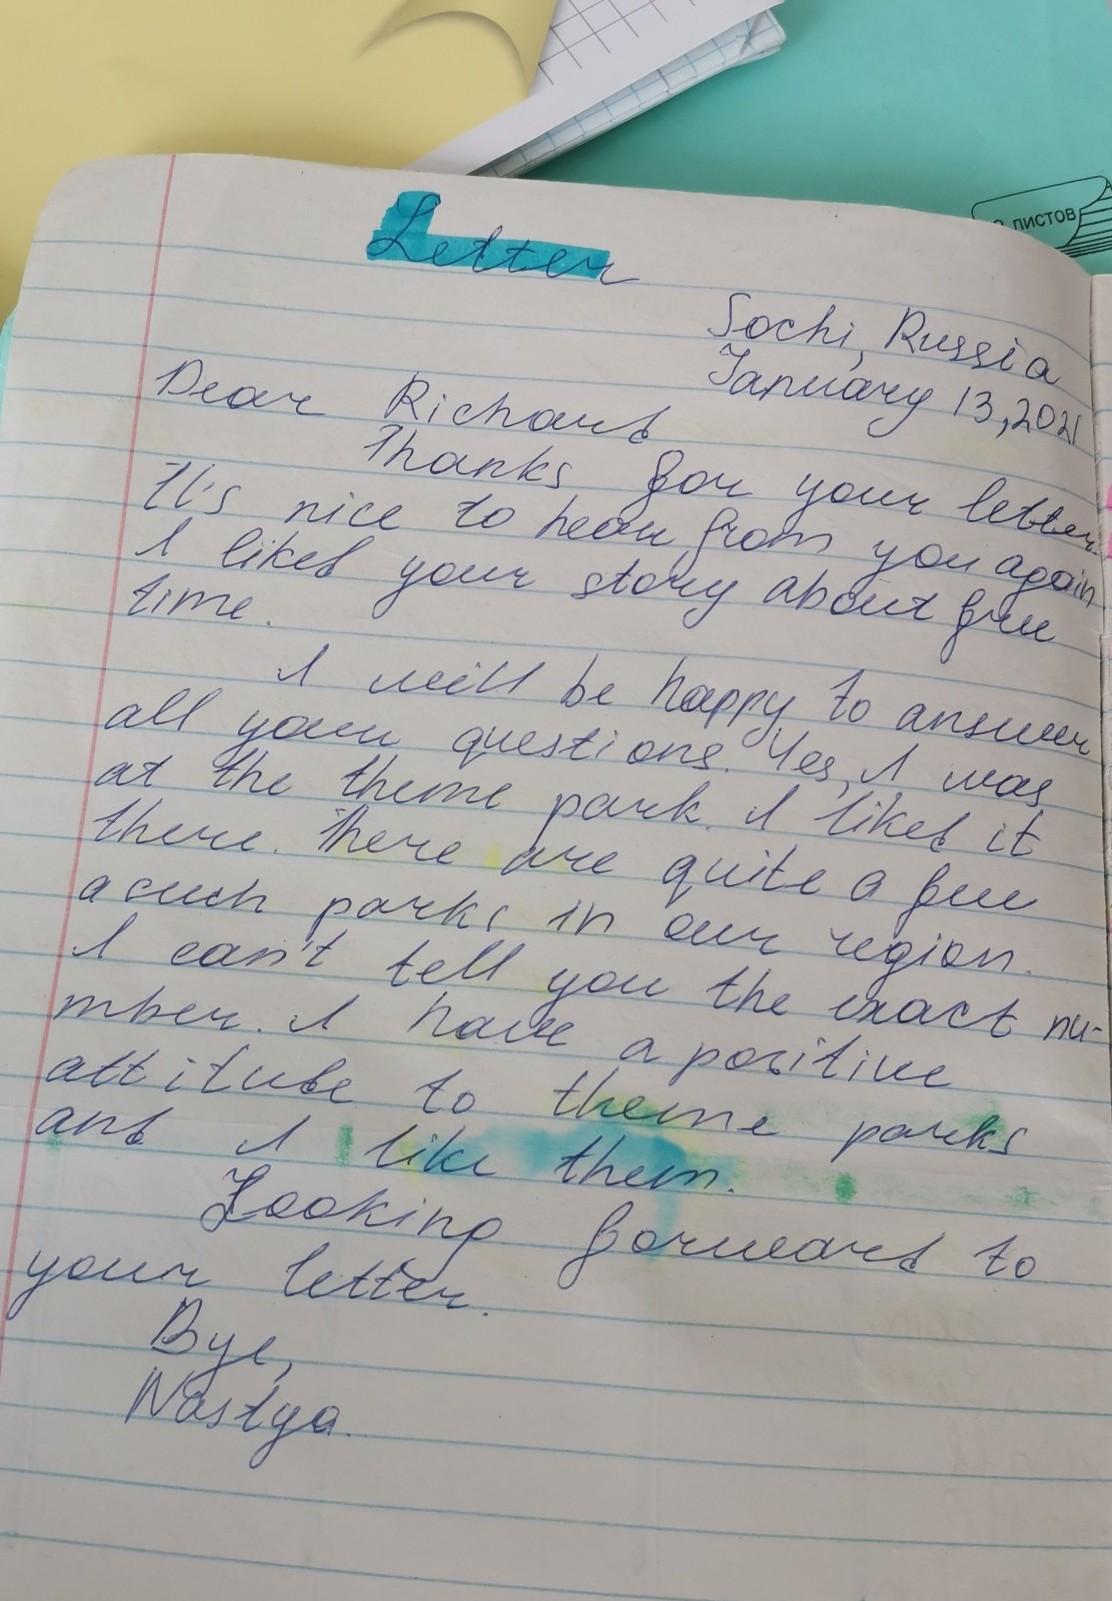 листов
Letter
Sochi, Russia
January 13, 2021
Dear Richard
Thanks for your letter.
It's nice to hear from you again
I liked your story about free
time.
I will be happy to answer
all your questions. Yes, I was
at the theme park. I liked it
there. There are quite a few
a such parks in our region.
I can't tell you the exact nu-
mber. I have a positive
attitude to theme parks
and I like them.
Looking forward to
your letter.
Bye,
Nastya.